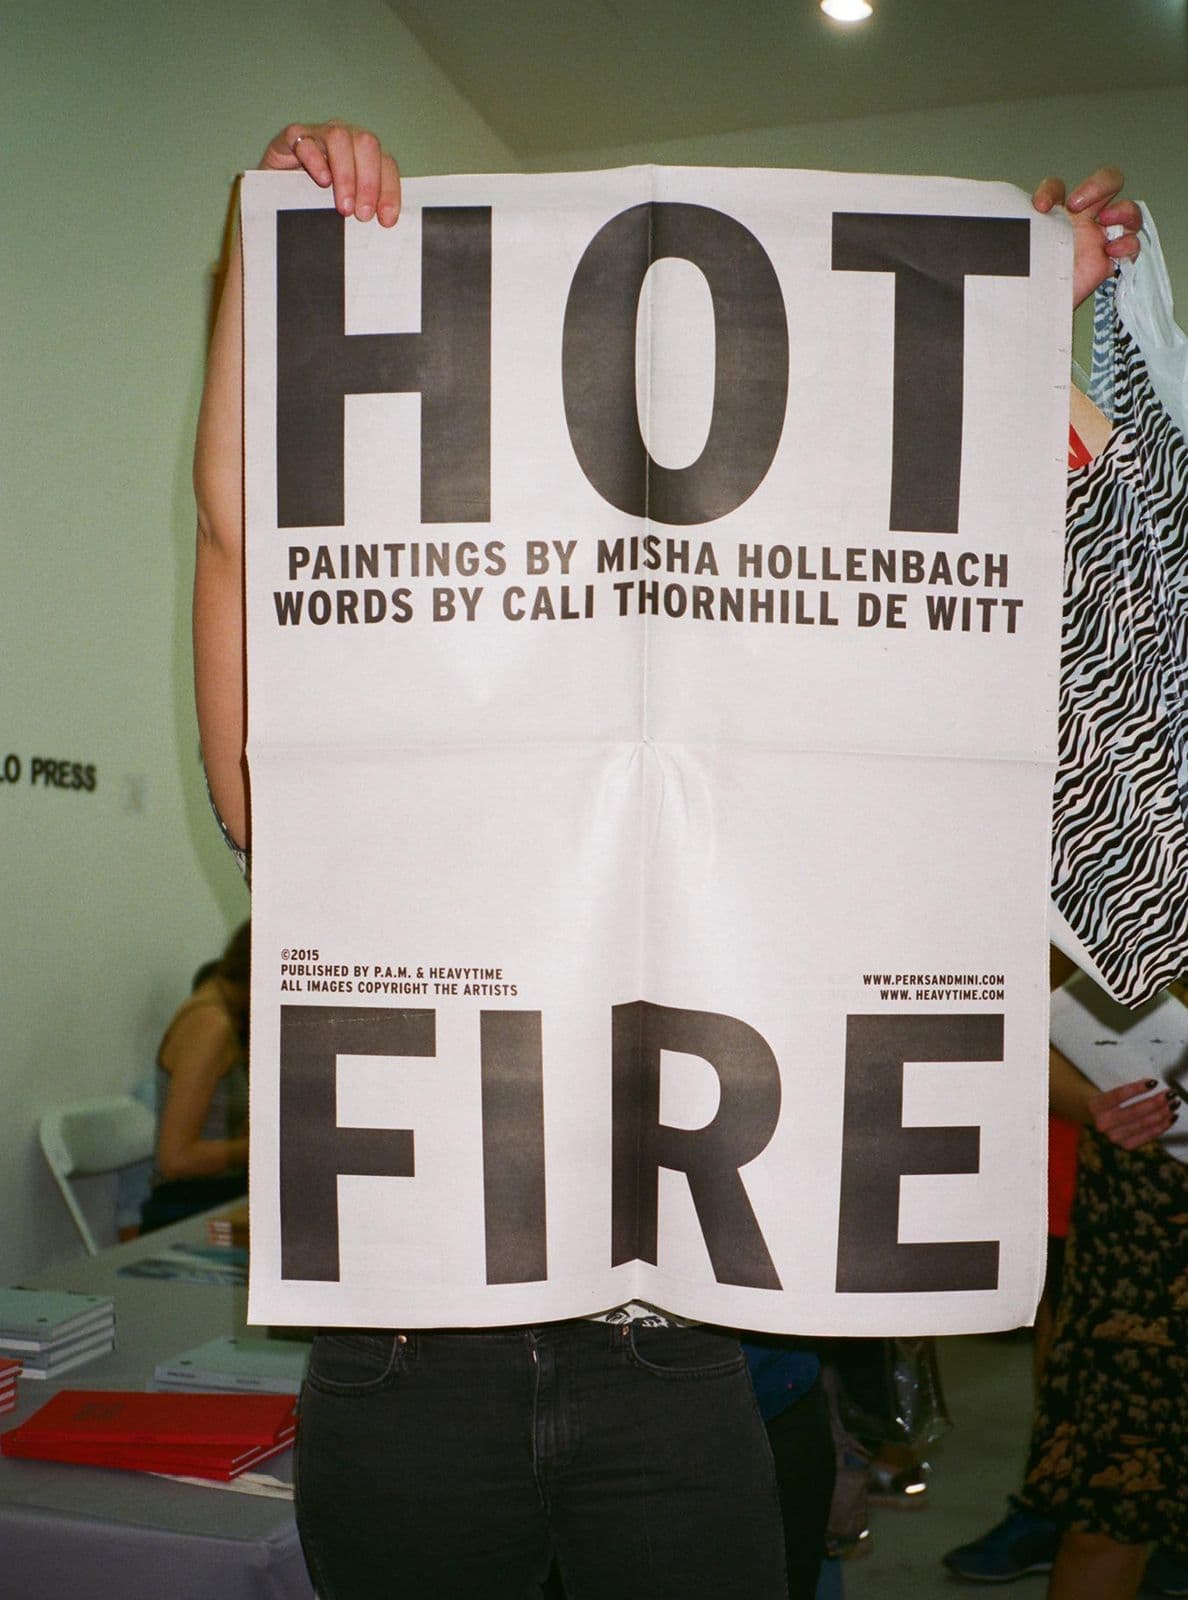 HOT
PAINTINGS BY MISHA HOLLENBACH
WORDS BY CALI THORNHILL DE WITT
LO PRESS
©2015
PUBLISHED BY P.A.M. & HEAVYTIME
ALL IMAGES COPYRIGHT THE ARTISTS
WWW.PERKSANDMINI.COM
WWW. HEAVYTIME.COM
FIRE